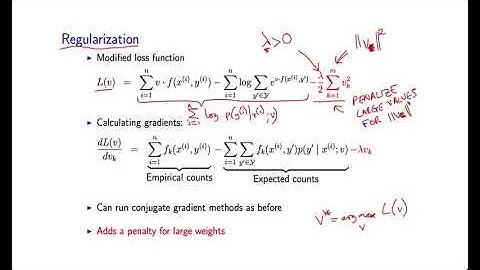 Regularization
λ>0
‖v‖²
▸ Modified loss function
L(v) = ∑_{i=1}^{n} v · f(x^{(i)}, y^{(i)}) − ∑_{i=1}^{n} log ∑_{y'∈𝒴} e^{v·f(x^{(i)},y')} − λ/2 ∑_{k=1}^{m} v_k^2
∑_{i=1}^{n} log p(y^{(i)}|x^{(i)};v)
PENALIZE
LARGE VALUES
FOR ‖v‖²
▸ Calculating gradients:
dL(v)/dv_k = ∑_{i=1}^{n} f_k(x^{(i)}, y^{(i)}) − ∑_{i=1}^{n} ∑_{y'∈𝒴} f_k(x^{(i)}, y')p(y' | x^{(i)}; v) −λv_k
Empirical counts Expected counts
▸ Can run conjugate gradient methods as before
v* = argmax_v L(v)
▸ Adds a penalty for large weights